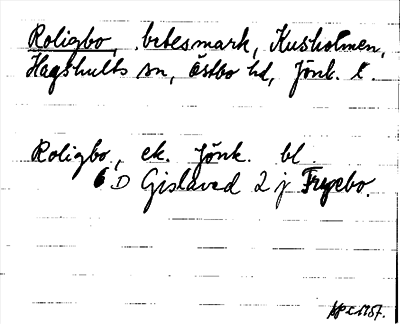 Roligbo, betesmark, Kusholmen,
Hagshults sn, Östbo hd, Jönk. l.
Roligbo, ek. Jönk. bl.
6 D Gislaved 2 j Fryebo.
1957.